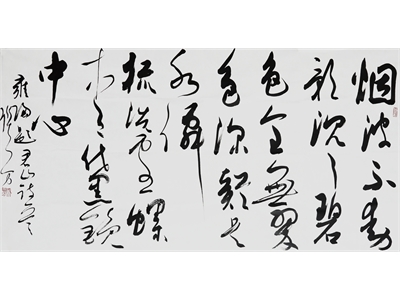 烟波不動
影沉沉碧
色全無翠
色深疑是
水仙
梳洗處一螺
青黛鏡
中心
雍陶題君山詩